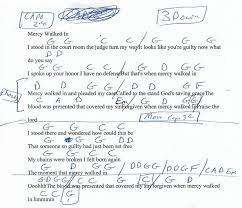 CAPO 2nd
3 Down
Mercy Walked In
C G G C
I stood in the court room the judge turn my way It looks like you're guilty now what
do you say
G C C G
I spoke up your honor I have no defense But that's when mercy walked in
G D D G
Mercy walked in and pleaded my case Called to the stand God's saving grace The
C A D Em C D G
blood was presented that covered my sin Forgiven when mercy walked in Praise the
lord
G C C G
I stood there and wondered how could this be
G G D D
That someone so guilty had just been set free
G C C G
My chains were broken I felt born again
G D G
The moment that mercy walked in
Ooohhh The blood was presented that covered my sin Forgiven when mercy walked
in hmmmm